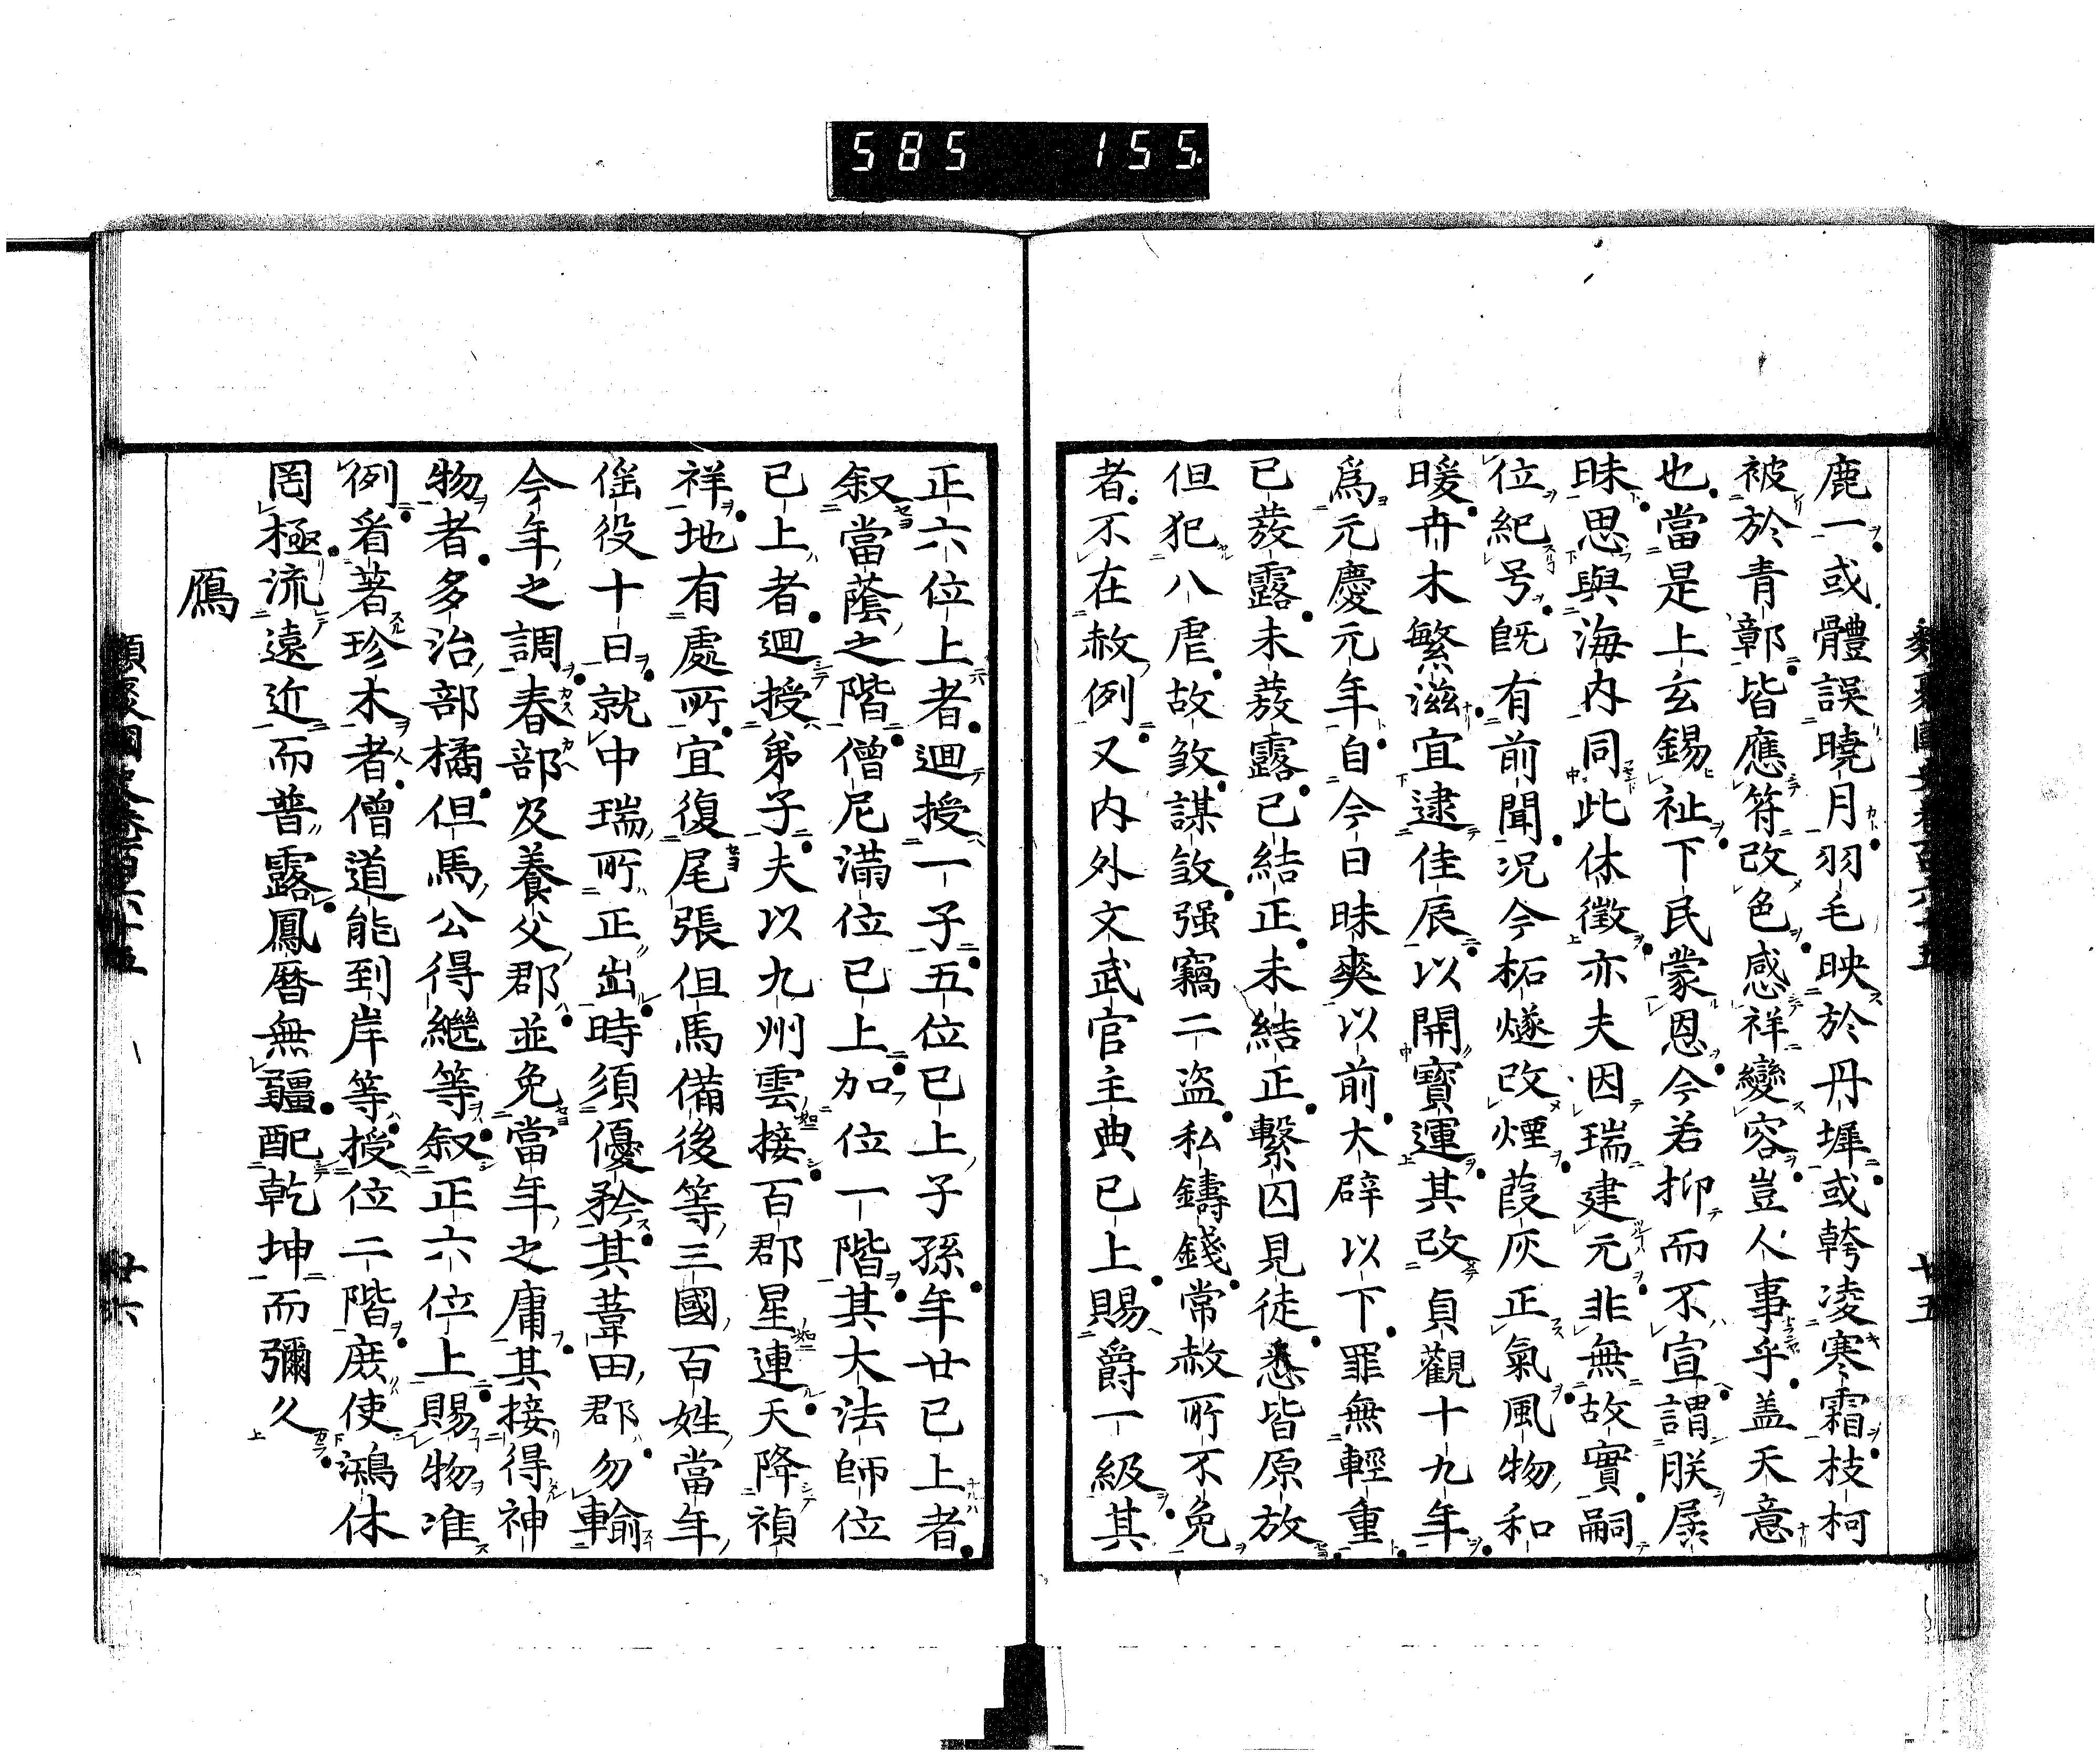 585 155
鹿一或體誤曉月羽毛映於丹墀或骻凌寒霜枝柯
被於青鄣皆應符改色感祥變容豈人事乎盖天意
也當是上玄錫祉下民蒙恩今若抑而不宣謂朕
昧思與海内同此休徵亦夫因瑞建元非無故實嗣
位紀号既有前聞况今柘燧改煙葭灰正氣風物和
暖卉木繁滋宜逮佳辰以開寶運其改貞觀十九年
爲元慶元年自今日昧爽以前大辟以下罪無輕重
已發露未發露已結正未結正繫囚見徒悉皆原放
但犯八虐故敓謀敓强竊二盗私鑄錢常赦所不免
者不在赦例又内外文武官主典已上賜爵一級其
正六位上者廻授一子五位已上子孫年廿已上者
叙當蔭之階僧尼滿位已上加位一階其大法師位
已上者廻授弟子夫以九州雲接百郡星連天降禎
祥地有處所宜復尾張但馬備後等三國百姓當年
徭役十日就中瑞所正出時須優矜其葦田郡勿輸
今年之調春部及養父郡並免當年之庸其接得神
物者多治部橘但馬公得繼等叙正六位上賜物准
例看著珍木者僧道能到岸等授位二階庶使鴻休
罔極流遠近而普露鳳曆無疆配乾坤而彌久
鴈